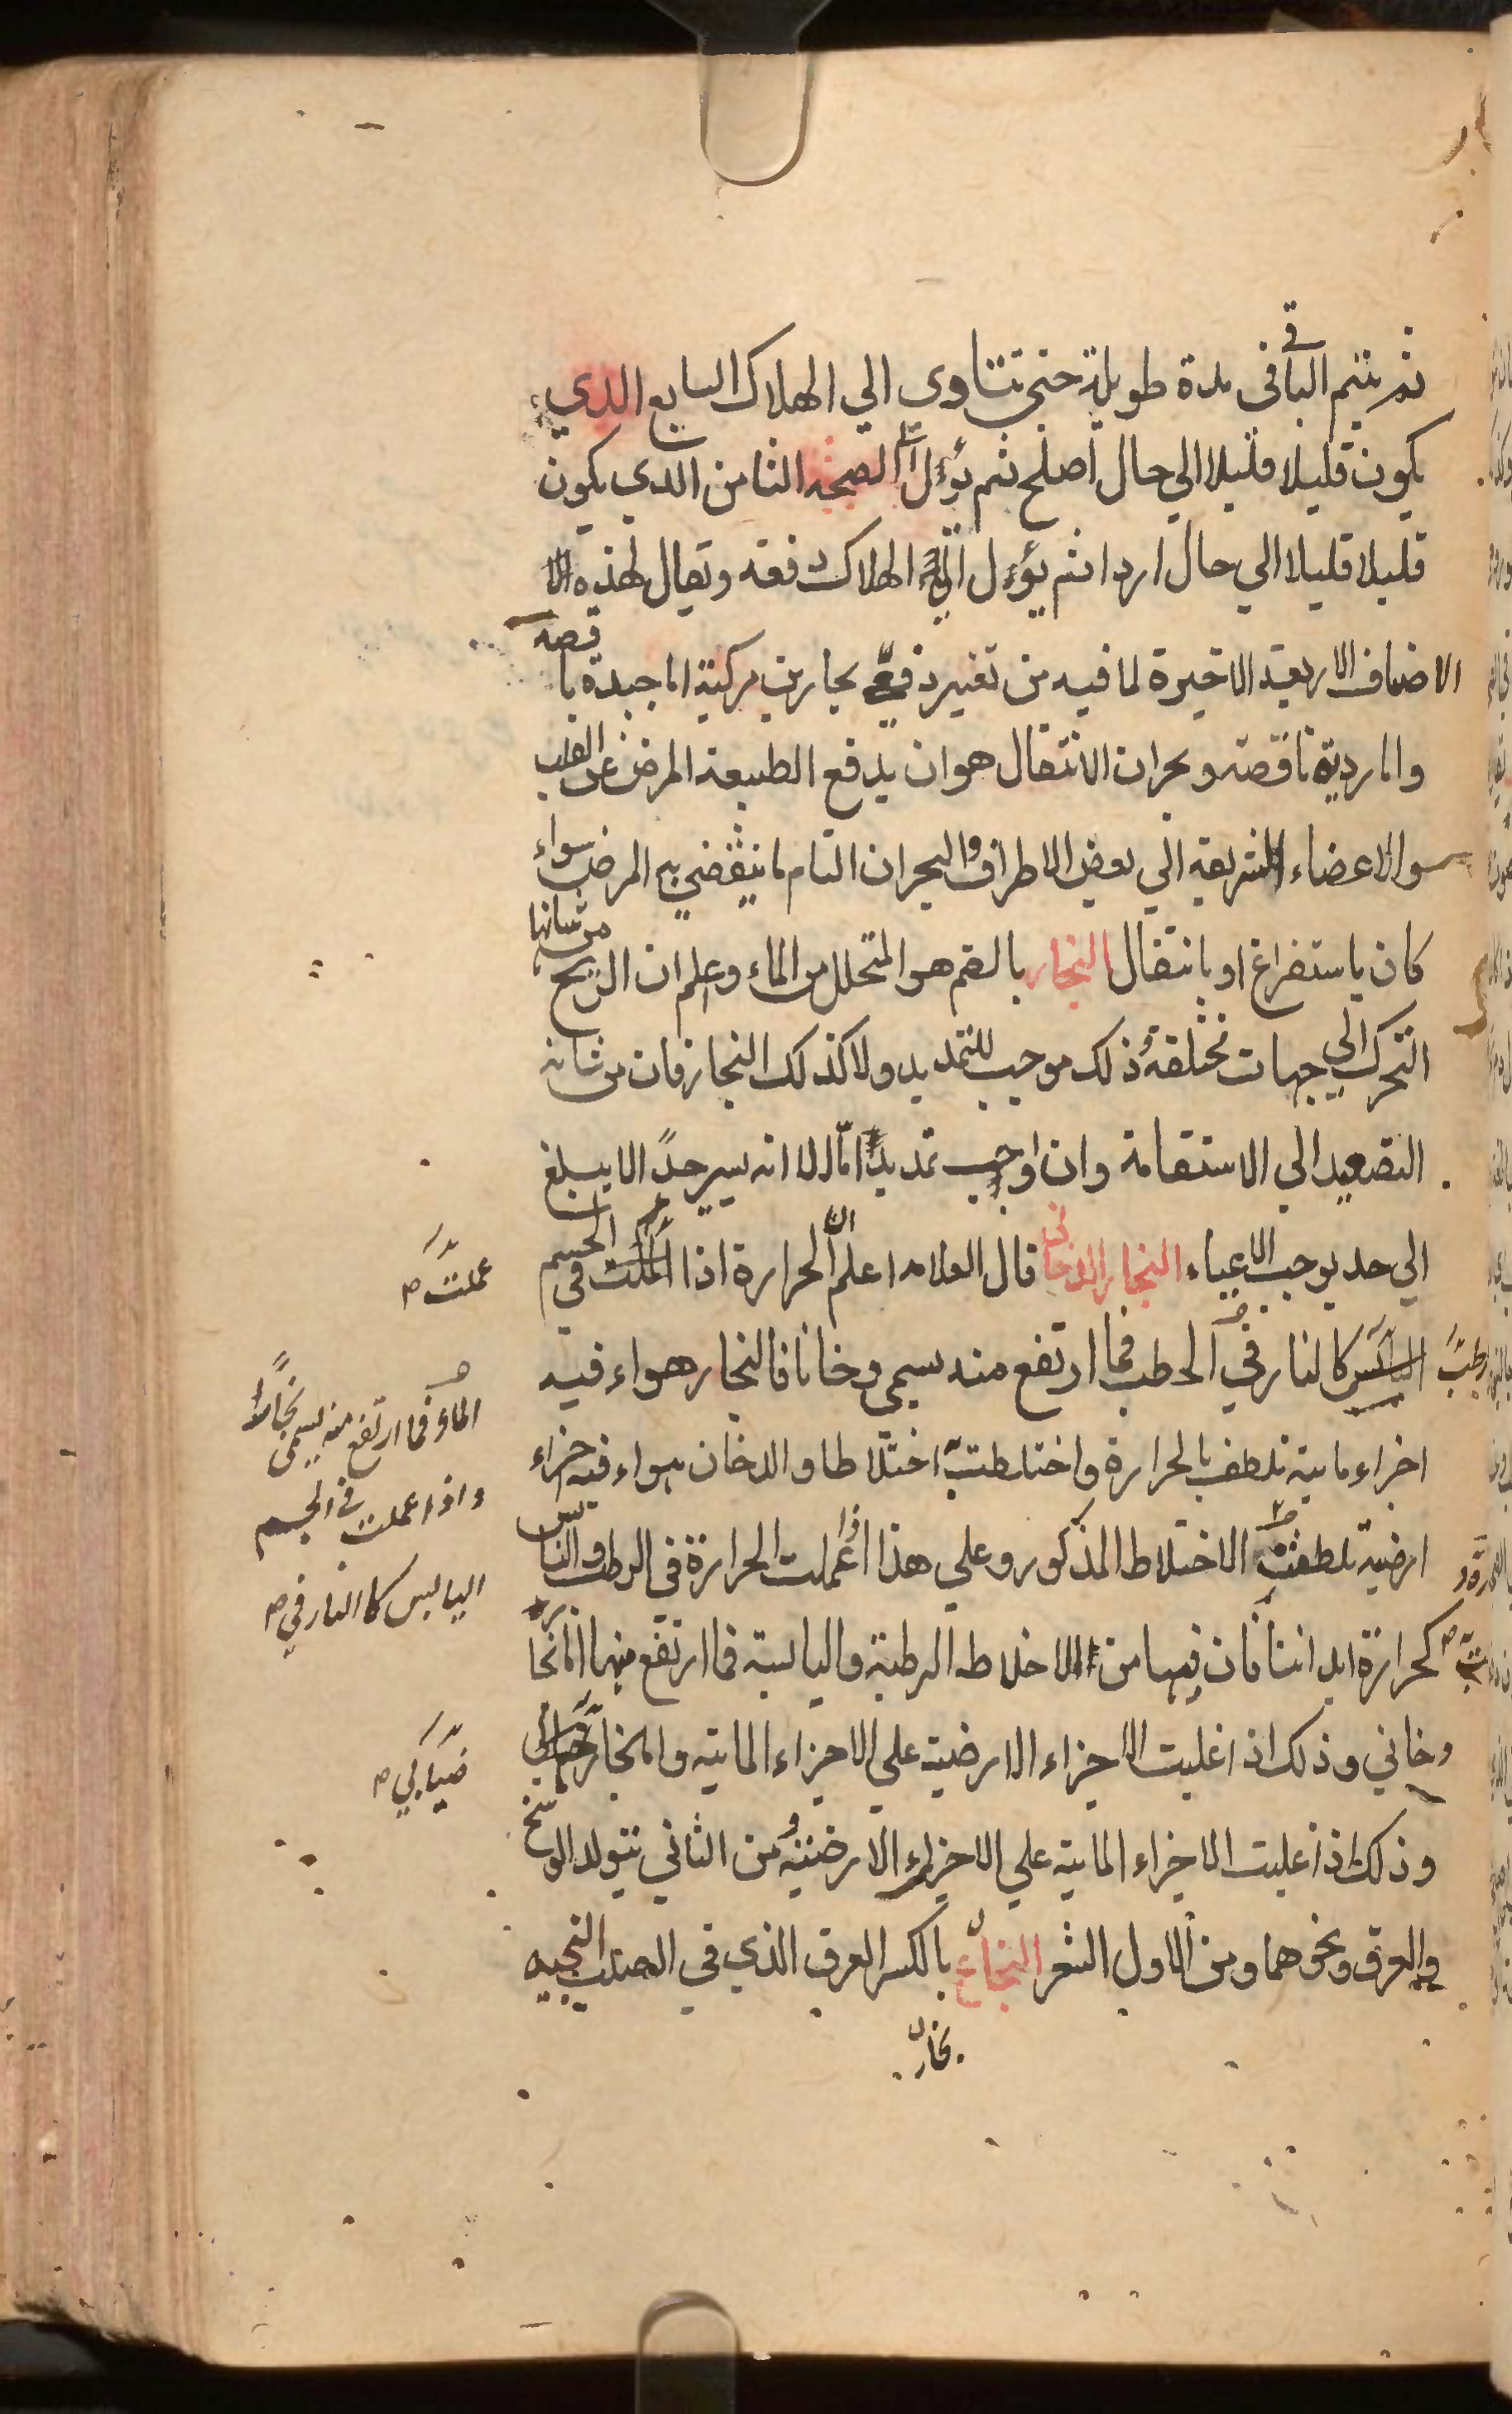 ثم يتم الباقى فى مدة طويلة حتى تتناوى الي الهلاك السابع الذي
يكون قليلا قليلا الي حال اصلح ثم يؤل الى الصحة الثامن الذي يكون
قليلا قليلا الي حال اردا ثم يؤل الى الهلاك دفعه ويقال لهذه الا
الاصناف الاربعة الاخيرة لما فيه من تغير دفعي بحارين مركبة اما جيدة نا قصه
واما ردية ناقصة وبحران الانتقال هو ان يدفع الطبيعة المرض عن القلب
والاعضاء الشريفه الي بعض الاطراف والبحران التام ما ينقضي به المرض سواء
كان باستفراغ او بانتقال البخار بالضم هو المتحلل من الماء وعلم ان الريح من شانها
التحرك الي جهات مختلفة ذلك موجب للتمديد ولا كذلك البخار فان من شانه
التصعيد الي الاستقامة وان اوجب تمديدًا اما الا انه يسير جدًا لا يبلغ
الي حد يوجب الاعياء البخار الدخانى قال العلامه اعلم ان الحرارة اذا عملت في الجسم
الرطب كالنار في الحطب فما ارتفع منه يسمي دخانا فالبخار هواء فيه
اجزاء مايية تلطف بالحرارة واختلطت اختلاطا والدخان هواء فيه اجزاء
ارضية تلطفت الاختلاط المذكور وعلي هذا اذا عملت الحرارة في الرطب واليابس
كحرارة ابداننا فان فيها من الاخلاط الرطبة واليابسة فما ارتفع منها اما بخار
دخاني وذلك اذا غلبت الاجزاء الارضية علي الاجزاء المايية واما بخار
وذلك اذا غلبت الاجزاء المايية علي الاجزاء الارضية ومن الثاني يتولد الوسخ
والعرق ونحوهما ومن الاول الشعر النجاع بالكسر العرق الذي في الصلب
بخار
عملت صح
الماء فما ارتفع منه يسمى بخارًا
واذا عملت في الجسم
اليابس كالنار في صح